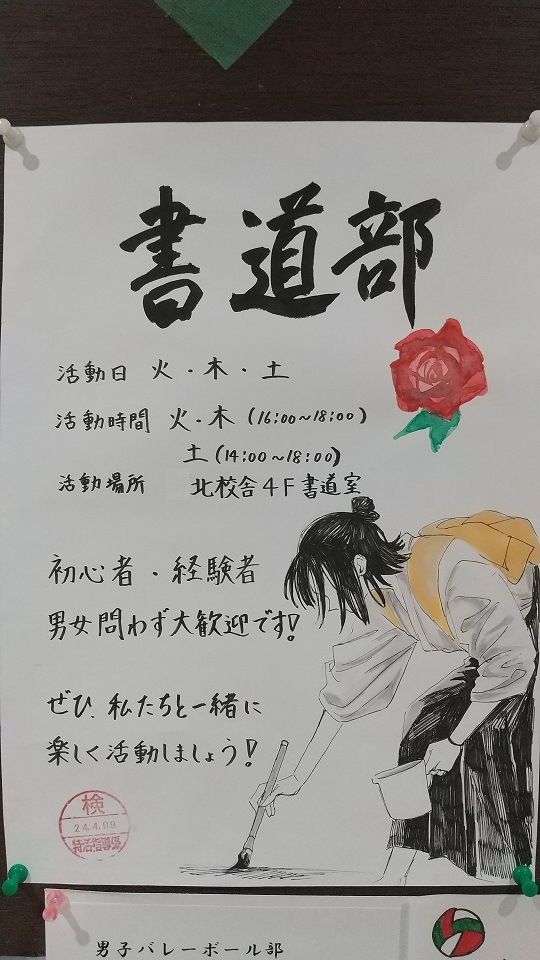 書道部
活動日 火・木・土
活動時間 火・木(16:00~18:00)
土(14:00~18:00)
活動場所 北校舎4F書道室
初心者・経験者
男女問わず大歓迎です!
ぜひ、私たちと一緒に
楽しく活動しましょう!
検
24.4.09
特活指導係
男子バレーボール部